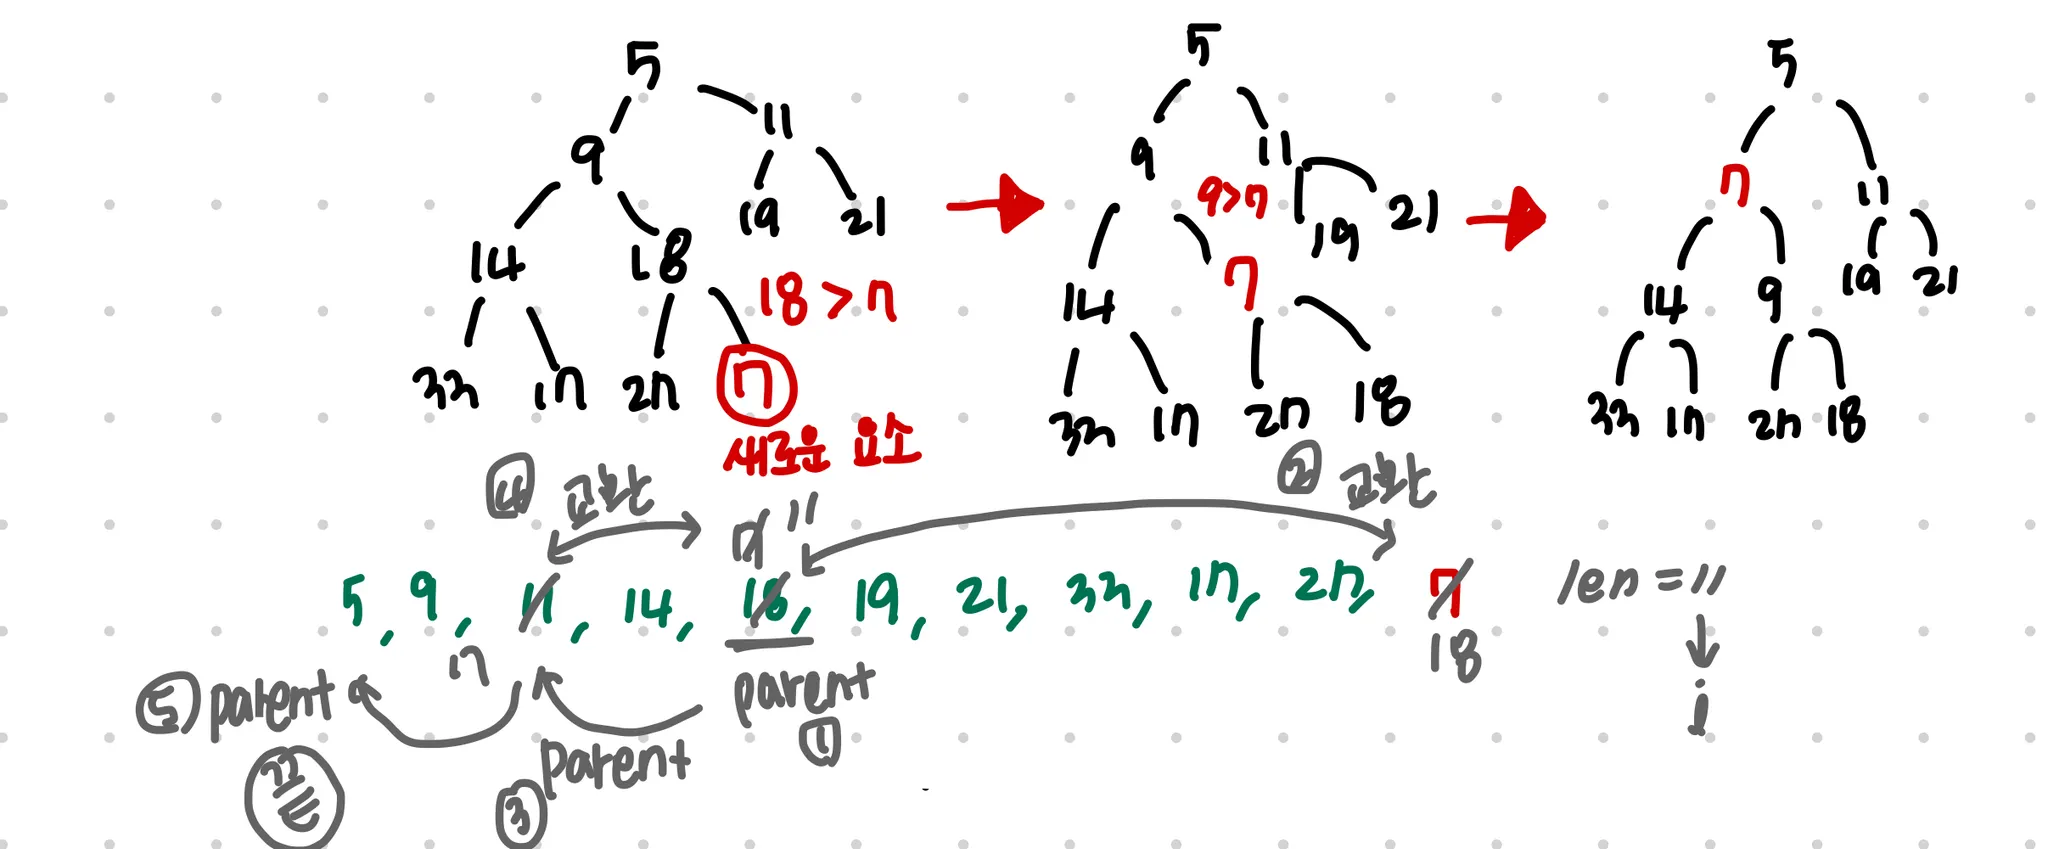 5
9 11
14 18 19 21
33 17 27 7
18 > 7
새로운 요소
5
9 11
9>7
14 7 19 21
33 17 27 18
5
7 11
14 9 19 21
33 17 27 18
④ 교환
② 교환
7 11
5, 9, 11, 14, 18, 19, 21, 33, 17, 27, 7
len = 11
7
18
i
⑤ parent
parent
①
parent
③
끝